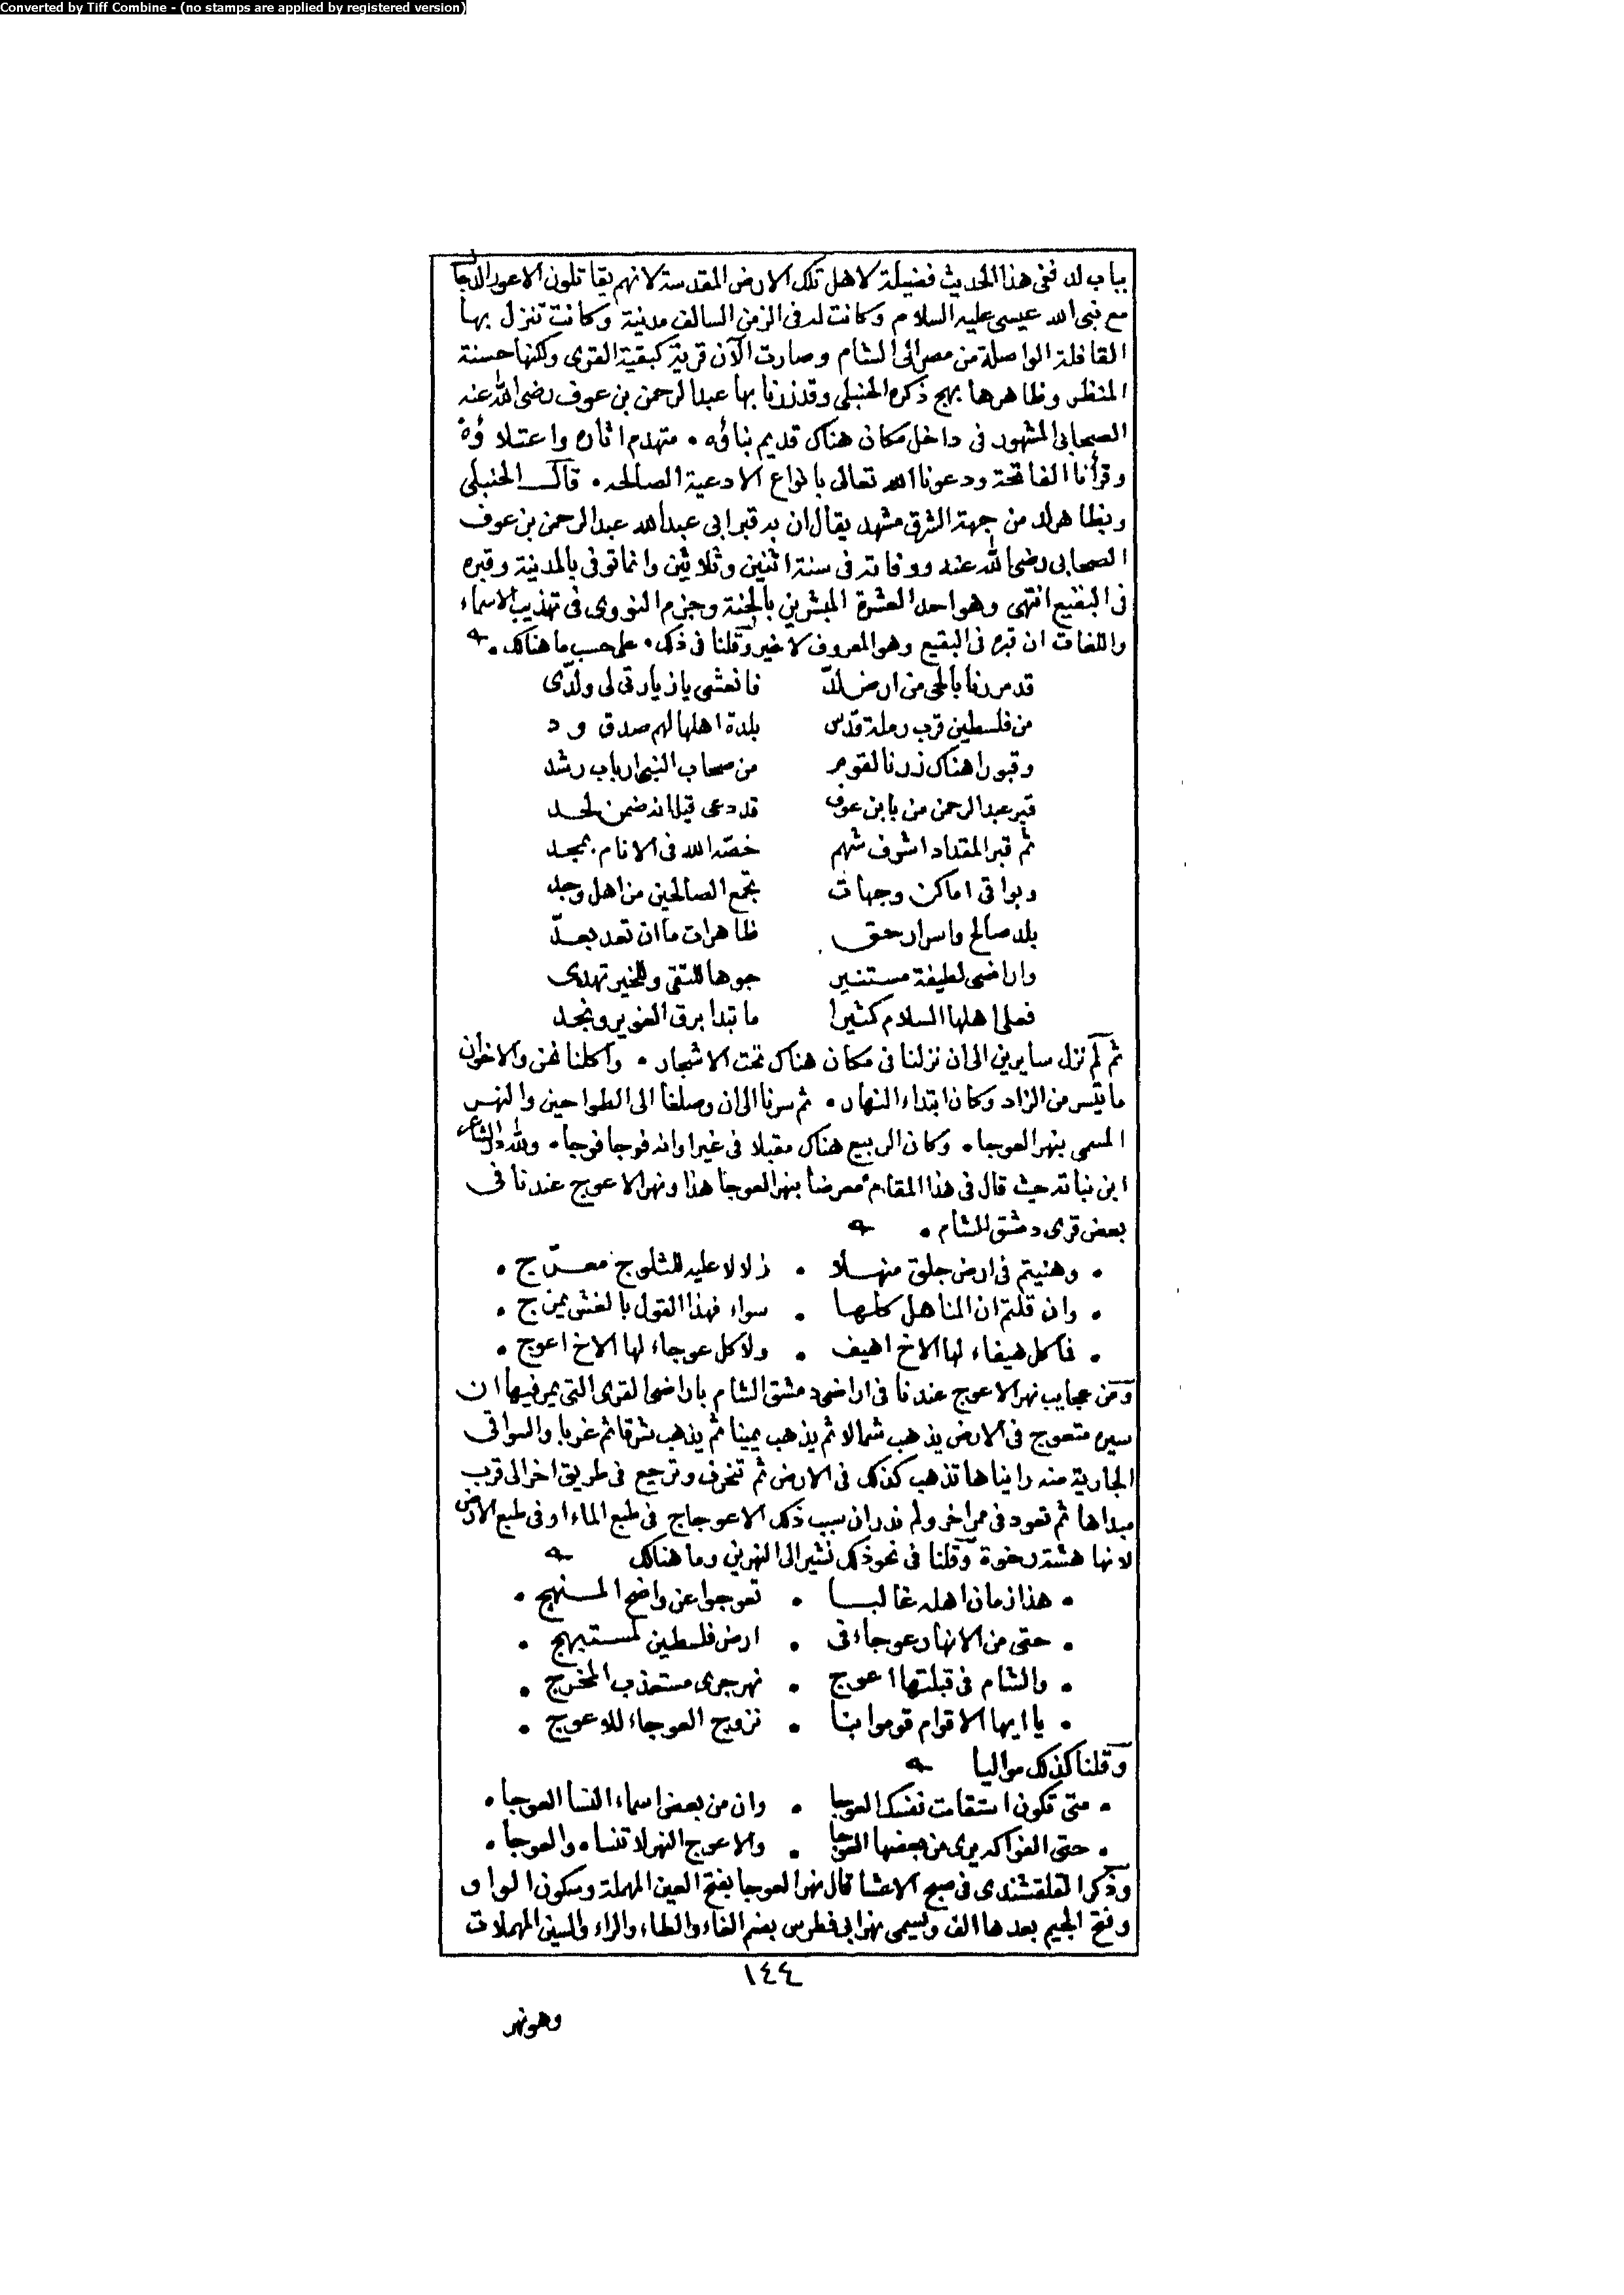 Converted by Tiff Combine - (no stamps are applied by registered version)
بباب لد ففى هذا الحديث فضيلة لاهل تلك الارض المقدسة لانهم يقاتلون الاعور الدجال
مع نبى الله عيسى عليه السلام وكانت لد فى الزمن السالف مدينة وكانت تنزل بها
القافلة الواصلة من مصر الى الشام وصارت الآن قرية كبقية القرى ولكنها حسنة
المنظر وظاهرها بهج ذكره الحنبلى وقد زرنا بها عبد الرحمن بن عوف رضى الله عنه
الصحابى المشهور فى داخل مكان هناك قديم بناؤه • متهدم اثاره واعتلاؤه
وقرأنا الفاتحة ودعونا الله تعالى بانواع الادعية الصالحه • قال الحنبلى
وبظاهر لد من جهة الشرق مشهد يقال ان به قبر ابى عبد الله عبد الرحمن بن عوف
الصحابى رضى الله عنه ووفاته فى سنة اثنين وثلاثين وانما توفى بالمدينة وقبره
فى البقيع انتهى وهو احد العشرة المبشرين بالجنة وجزم النووى فى تهذيب الاسماء
واللغات ان قبره فى البقيع وهو المعروف لا غير وقلنا فى ذلك • على حسب ما هنالك •
قد مررنا بالحى من ارض لد فانعشى يا زيارتى لى ولدّى
من فلسطين قرب رملة قدس بلدة اهلها لهم صدق ود
وقبورا هناك زرنا لقوم من صحاب النبى ارباب رشد
قبر عبد الرحمن من بابن عوف قد دعى قيل انه ضمن لحد
ثم قبر المقداد اشرف شهم خصّه الله فى الانام بمجد
وبواقى اماكن وجهات تجمع الصالحين من اهل وجد
بلد صالح واسرار حق ظاهرات ما ان تعد بعدّ
واراضى لطيفة مستنير جوها للتقى وللخير تهدى
فعلى اهلها السلام كثيرا ما تبدا برق الغوير ونجد
ثم لم نزل سايرين الى ان نزلنا فى مكان هناك تحت الاشجار • واكلنا نحن والاخوان
ما تيسر من الزاد وكان ابتداء النهار • ثم سرنا الى ان وصلنا الى الطواحين والنهر
المسمى بنهر العوجا • وكان الربيع هناك مقبلا فى غير اوانه فوجا فوجا • ولله در الشاعر
ابن نباته حيث قال فى هذا المقام معرضا بنهر العوجا هذا ونهر الاعوج عندنا فى
بعض قرى دمشق الشام •
• وهنيتم فى ارض جلق منهلا • زلالا عليه للثلوج معرّج •
• وان قلتم ان المناهل كلها • سواء فهذا القول بالغش يمزج •
• فما كل هيفاء لها الاخ اهيف • ولا كل عوجاء لها الاخ اعوج •
ومن عجايب نهر الاعوج عندنا فى اراضى دمشق الشام باراضى القرى التى يمر فيها ان
سيره متعوج فى الارض يذهب شمالا ثم يذهب يمينا ثم يذهب شرقا ثم غربا والسواقى
الجارية منه رايناها تذهب كذلك فى الارض ثم تنحرف وترجع فى طريق اخر الى قرب
مبداها ثم تعود فى ممر اخر ولم ندر ان سبب ذلك الاعوجاج فى طبع الماء او فى طبع الارض
لانها هشة رخوة وقلنا فى نحو ذلك نشير الى النهرين وما هنالك
• هذا زمان اهله غالبا • تعوجوا عن واضح المنهج •
• حتى من الانهار عوجاء فى • ارض فلسطين لمستبهج •
• والشام فى قبلتها اعوج • نهر جرى مستعذب المخرج •
• يا ايها الاقوام قوموا بنا • نزوج العوجاء للاعوج •
وقلنا كذلك مواليا
• متى تكون استقامت نفسك العوجا • وان من بعض اسماء النسا العوجا •
• حتى الفواكه يرى من بعضها العوجا • والاعوج النهر لا تنساه والعوجا •
وذكر القلقشندى فى صبح الاعشا قال نهر العوجا بفتح العين المهملة وسكون الواو و
وفتح الجيم بعدها الف ويسمى نهر ابى فطرس بضم الفاء والطاء والراء والسين المهملات
١٤٤
وهو نهر